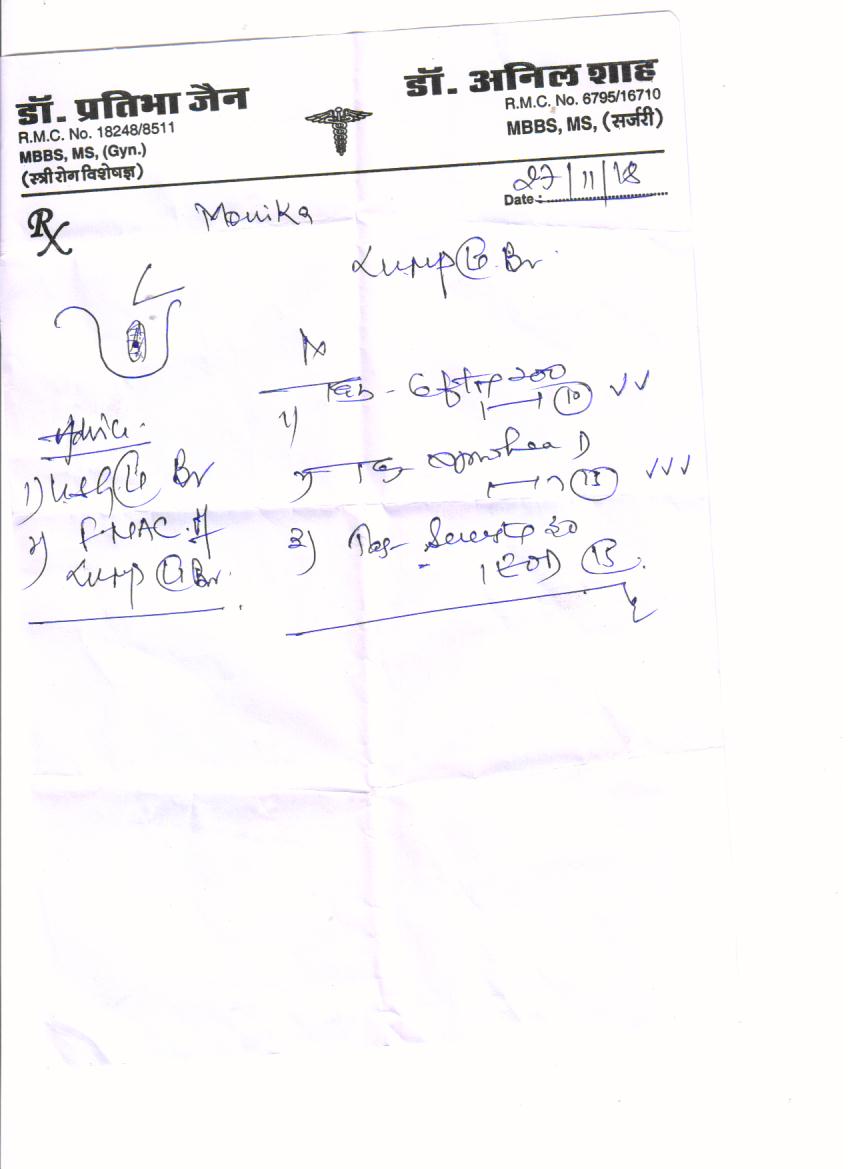 डॉ. प्रतिभा जैन
R.M.C. No. 18248/8511
MBBS, MS, (Gyn.)
(स्त्री रोग विशेषज्ञ)
डॉ. अनिल शाह
R.M.C. No. 6795/16710
MBBS, MS, (सर्जरी)
Date : 27/11/18
Rx
Monika
Lump Lt Br.
Advice.
1) USG Lt Br
2) FNAC
Lump Lt Br.
Rx
1) Tab - 200
1 10
2) D
15
3) Tab 20
1 OD 15